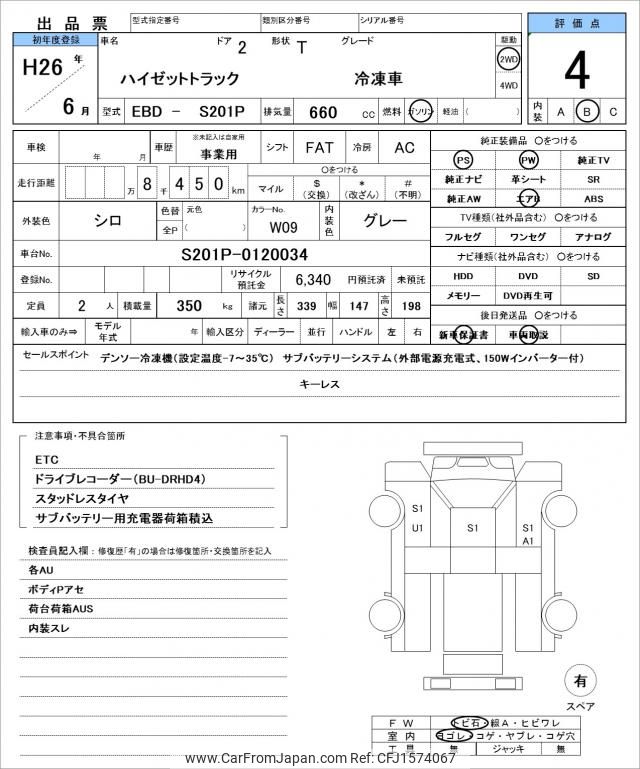 出品票
型式指定番号
類別区分番号
シリアル番号
評価点
初年度登録
車名
ドア 2
形状 T
グレード
駆動
H26 年
6 月
ハイゼットトラック
冷凍車
2WD
4WD
4
型式 EBD - S201P
排気量 660 cc
燃料 ガソリン 軽油 ( )
内装 A B C
車検
年 月
車歴
※未記入は自家用
事業用
シフト FAT
冷房 AC
純正装備品 〇をつける
走行距離
万 8 千 4 5 0 km
〇をつける
マイル
$ (交換)
* (改ざん)
# (不明)
PS PW 純正TV
純正ナビ 革シート SR
純正AW エアB ABS
外装色 シロ
色替
全P
元色
( )
カラーNo.
W09
内装色 グレー
TV種類(社外品含む) 〇をつける
フルセグ ワンセグ アナログ
車台No. S201P-0120034
ナビ種類(社外品含む) 〇をつける
登録No.
リサイクル預託金 6,340 円預託済 未預託
HDD DVD SD
メモリー DVD再生可
定員 2 人 積載量 350 kg 諸元 長さ 339 幅 147 高さ 198
後日発送品 〇をつける
輸入車のみ⇒ モデル年式 年 輸入区分 ディーラー 並行 ハンドル 左 右
新車保証書 車両取説
セールスポイント デンソー冷凍機(設定温度-7〜35℃) サブバッテリーシステム(外部電源充電式、150Wインバーター付)
キーレス
注意事項・不具合箇所
ETC
ドライブレコーダー(BU-DRHD4)
スタッドレスタイヤ
サブバッテリー用充電器荷箱積込
検査員記入欄：修復歴「有」の場合は修復箇所・交換箇所を記入
各AU
ボディPアセ
荷台荷箱AUS
内装スレ
S1
U1
S1
S1
A1
有
スペア
FW トビ石・線A・ヒビワレ
室内 ヨゴレ・コゲ・ヤブレ・コゲ穴
工具 無 ジャッキ 無
www.CarFromJapan.com Ref: CFJ1574067